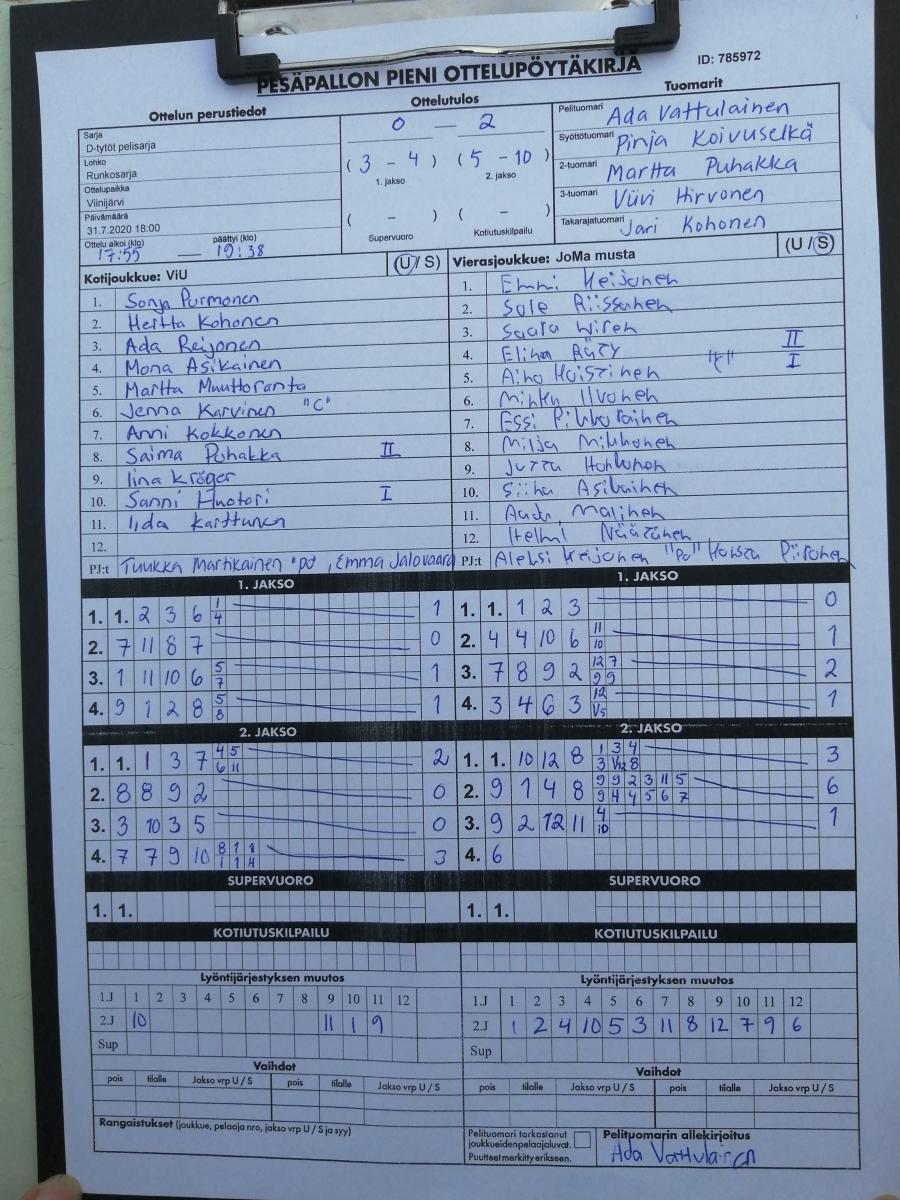 PESÄPALLON PIENI OTTELUPÖYTÄKIRJA
ID: 785972
Ottelun perustiedot
Sarja
D-tytöt pelisarja
Lohko
Runkosarja
Ottelupaikka
Viinijärvi
Päivämäärä
31.7.2020 18:00
Ottelu alkoi (klo) päättyi (klo)
17:55 — 19:38
Ottelutulos
0 — 2
(3 - 4) (5 - 10)
1. jakso 2. jakso
( - ) ( - )
Supervuoro Kotiutuskilpailu
Tuomarit
Pelituomari Ada Vattulainen
Syöttötuomari Pinja Koivuselkä
2-tuomari Martta Puhakka
3-tuomari Viivi Hirvonen
Takarajatuomari Jari Kohonen
Kotijoukkue: ViU (U / S)
1. Sonja Purmonen
2. Hertta Kohonen
3. Ada Reijonen
4. Mona Asikainen
5. Martta Muuttoranta
6. Jenna Karvinen "C"
7. Anni Kokkonen
8. Saima Puhakka II
9. Iina Kröger
10. Sanni Huotari I
11. Iida Karttunen
12.
PJ:t Tuukka Martikainen "po", Emma Jalovaara
Vierasjoukkue: JoMa musta (U / S)
1. Emmi Keijonen
2. Sale Riissanen
3. Saara Wiren
4. Elina Räty II
5. Aino Hoistinen I
6. Minttu Ilvonen
7. Essi Pikkarainen
8. Milja Mikkonen
9. Jutta Honkonen
10. Siina Asikainen
11. Malinen
12. Helmi Näätänen
PJ:t Aleksi Keijonen "Po" Piironen
1. JAKSO
1. 1. 2 3 6 1 1
4
2. 7 11 8 7 0
3. 1 11 10 6 5 1
7
4. 9 1 2 8 5 1
8
1. JAKSO
1. 1. 1 2 3 0
2. 4 4 10 6 11 1
10
3. 7 8 9 2 12 7 2
9 9
4. 3 4 6 3 12 1
V5
2. JAKSO
1. 1. 1 3 7 4 5 2
6 11
2. 8 8 9 2 0
3. 3 10 3 5 0
4. 7 7 9 10 8 1 1 3
1 1 H
2. JAKSO
1. 1. 10 12 8 1 3 4 3
3 V12 8
2. 9 1 4 8 9 9 2 3 11 5 6
9 4 4 5 6 7
3. 9 2 12 11 4 1
10
4. 6
SUPERVUORO
1. 1.
SUPERVUORO
1. 1.
KOTIUTUSKILPAILU
KOTIUTUSKILPAILU
Lyöntijärjestyksen muutos
1.J 1 2 3 4 5 6 7 8 9 10 11 12
2.J 10 11 1 9
Sup
Lyöntijärjestyksen muutos
1.J 1 2 3 4 5 6 7 8 9 10 11 12
2.J 1 2 4 10 5 3 11 8 12 7 9 6
Sup
Vaihdot
pois tilalle Jakso vrp U / S pois tilalle Jakso vrp U / S
Vaihdot
pois tilalle Jakso vrp U / S pois tilalle Jakso vrp U / S
Rangaistukset (joukkue, pelaaja nro, jakso vrp U / S ja syy)
Pelituomari tarkastanut
joukkueiden pelaajaluvat.
Puutteet merkitty erikseen.
Pelituomarin allekirjoitus
Ada Vattulainen